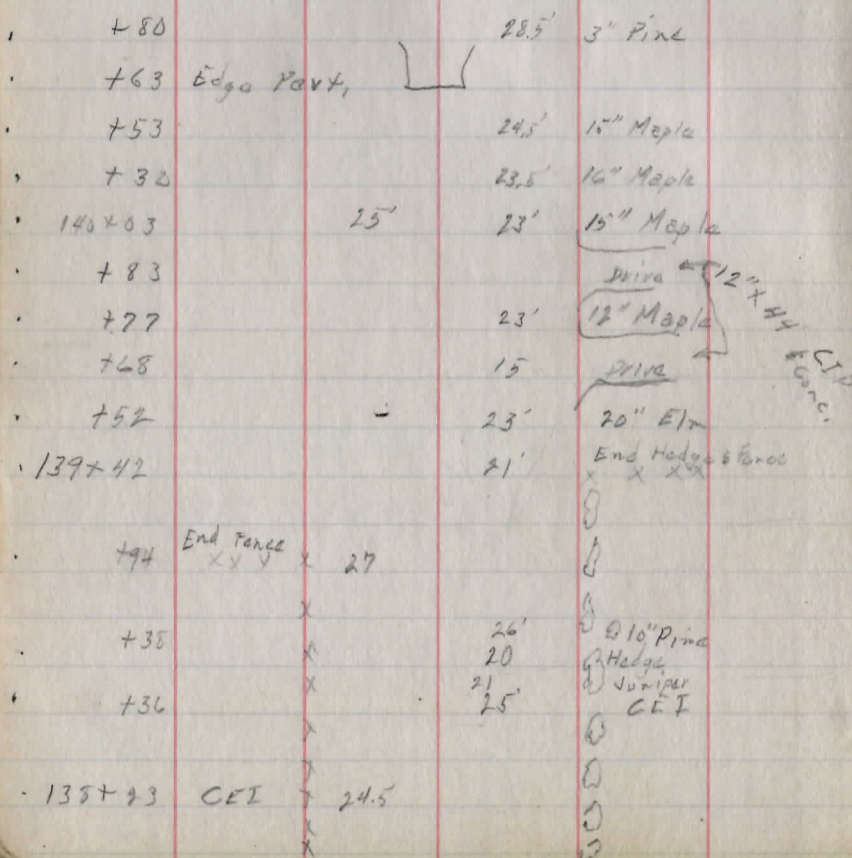 +80 28.5' 3" Pine
+63 Edge Pav't,
+53 24.5' 15" Maple
+30 23.5' 16" Maple
140+03 25' 23' 15" Maple
+83 Drive 12" x
+77 23' 12" Maple
+68 15 Drive CIP
& Conc.
+52 23' 20" Elm
139+42 21' End Hedge & Fence
x x x x
+94 End Fence 27
+38 26' 10" Pine
20 Hedge
21 Juniper
+36 25' CEI
138+23 CEI 24.5